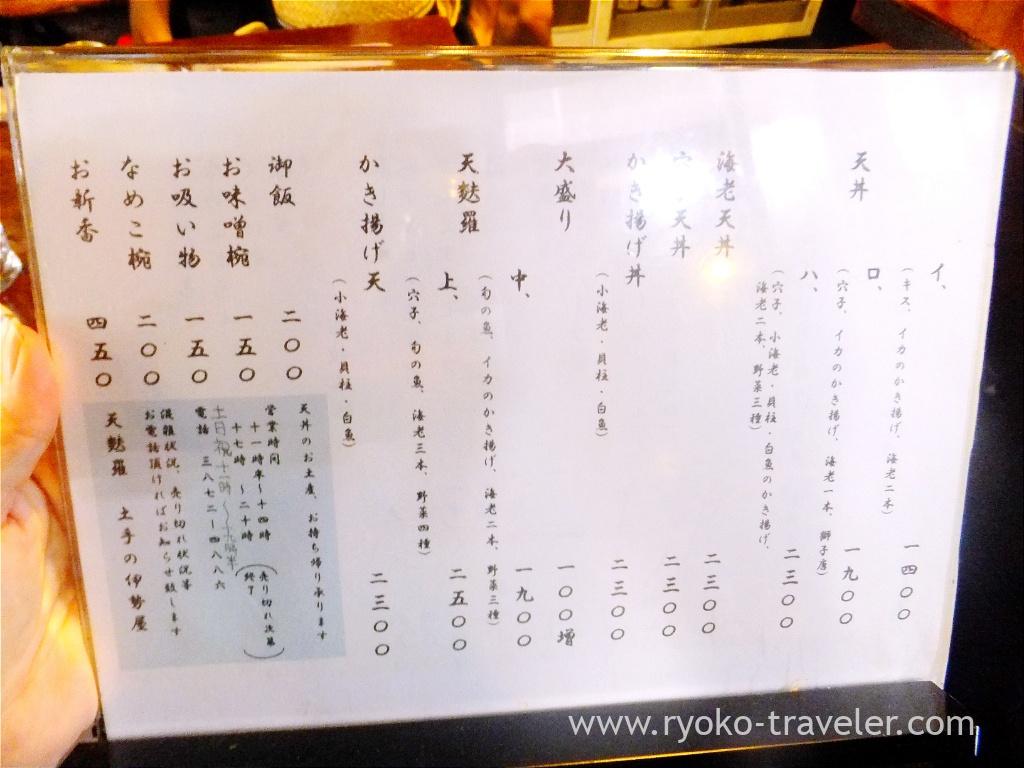 天丼
イ、 一四〇〇
(キス、イカのかき揚げ、海老二本)
ロ、 一九〇〇
(穴子、イカのかき揚げ、海老一本、獅子唐)
ハ、 二三〇〇
(穴子、小海老・貝柱・白魚のかき揚げ、
海老二本、野菜三種)
海老天丼 二三〇〇
天丼 二三〇〇
かき揚げ丼 二三〇〇
(小海老・貝柱・白魚)
大盛り 一〇〇増
天麩羅
中、 一九〇〇
(旬の魚、イカのかき揚げ、海老二本、野菜三種)
上、 二五〇〇
(穴子、旬の魚、海老三本、野菜四種)
かき揚げ天 二三〇〇
(小海老・貝柱・白魚)
御飯 二〇〇
お味噌椀 一五〇
お吸い物 一五〇
なめこ椀 二〇〇
お新香 四五〇
天丼のお土産、お持ち帰り承ります
営業時間
十一時半~十四時
十七時 ~二十時(売り切れ次第終了)
土日祝十一時~
電話 三八七二-四八八六
混雑状況、売り切れ状況等
お電話頂ければお知らせ致します
天麩羅 土手の伊勢屋
www.ryoko-traveler.com